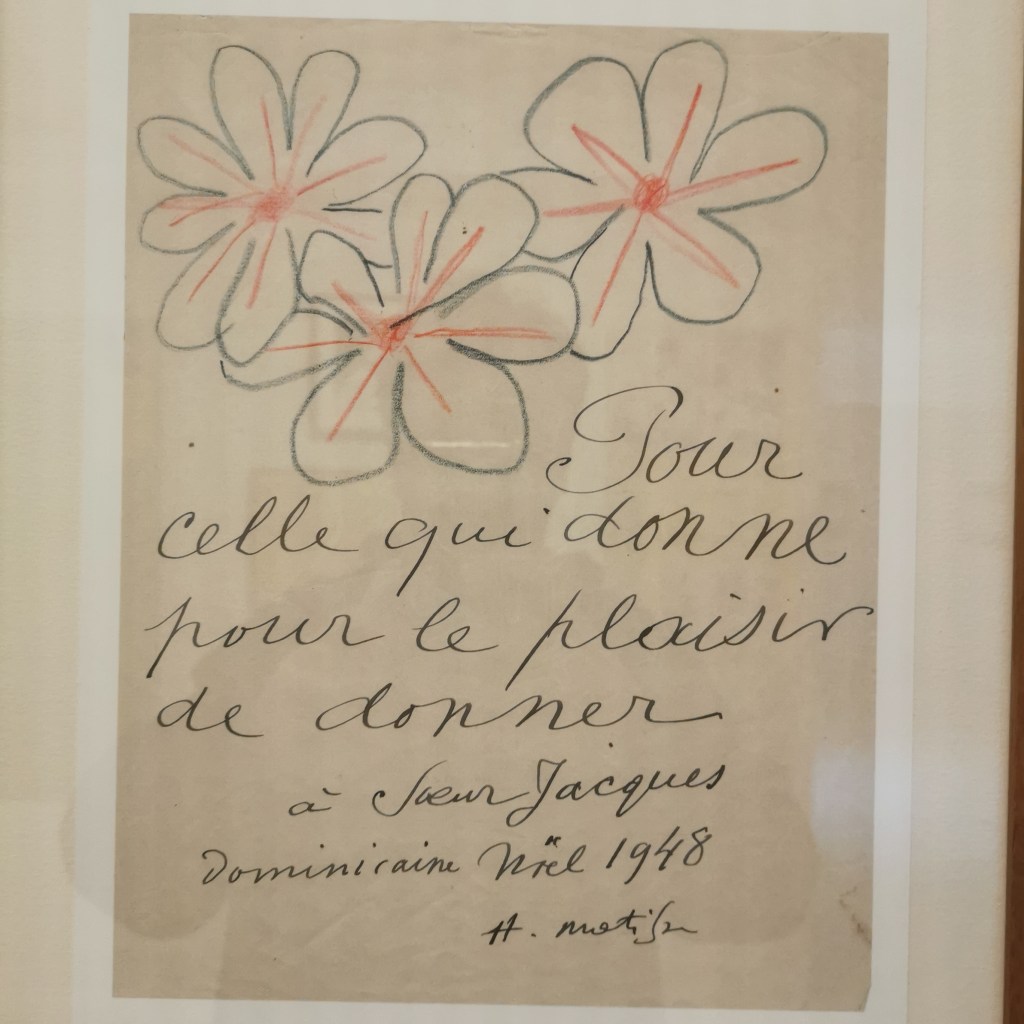 Pour
celle qui donne
pour le plaisir
de donner
à Sœur Jacques
Dominicaine Noël 1948
H. matisse